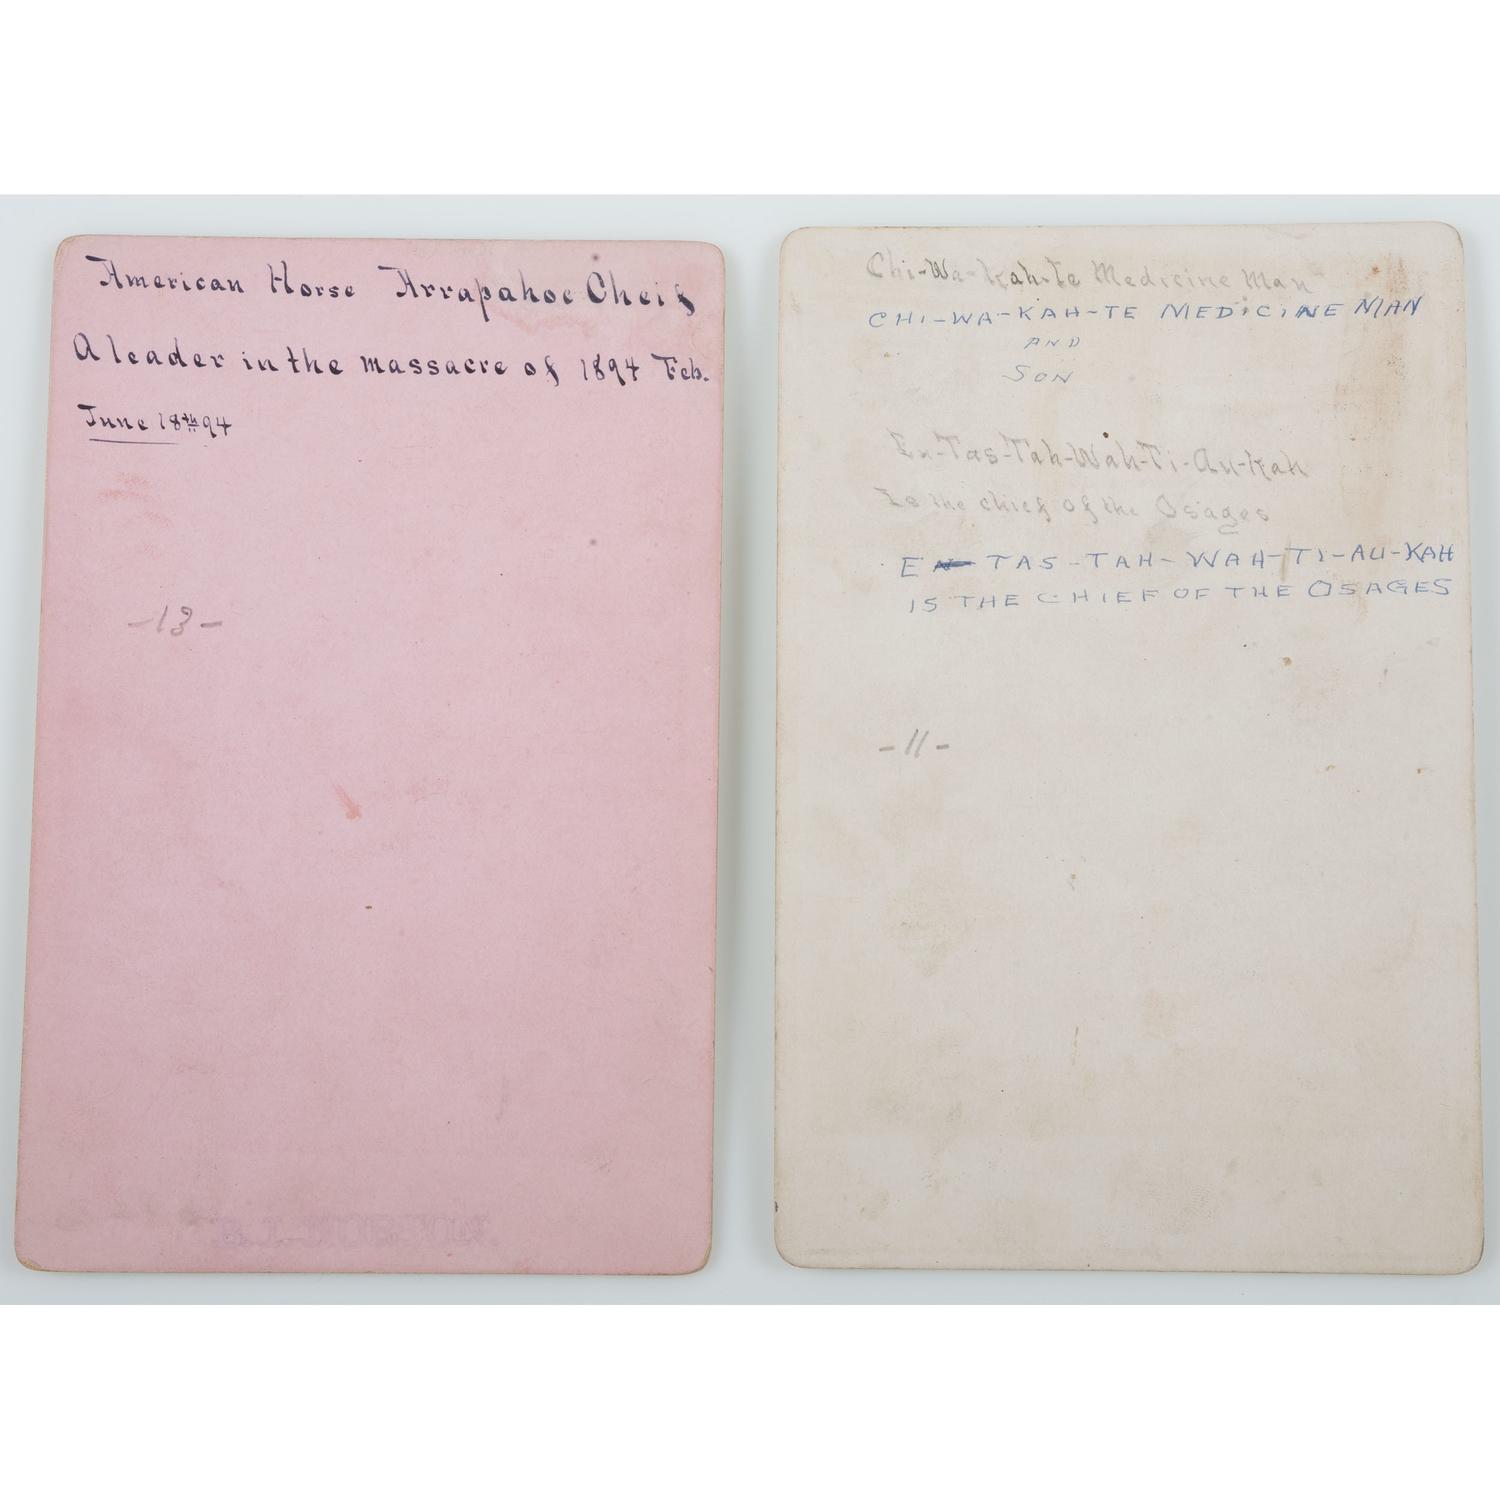 American Horse Arrapahoe Cheif
A leader in the massacre of 1894 Feb.
June 18th 94
-13-
Chi-Wa-Kah-Te Medicine Man
CHI-WA-KAH-TE MEDICINE MAN
AND
SON
En-Tas-Tah-Wah-Ti-Au-Kah
Is the chief of the Osages
E TAS-TAH-WAH-TI-AU-KAH
IS THE CHIEF OF THE OSAGES
-11-